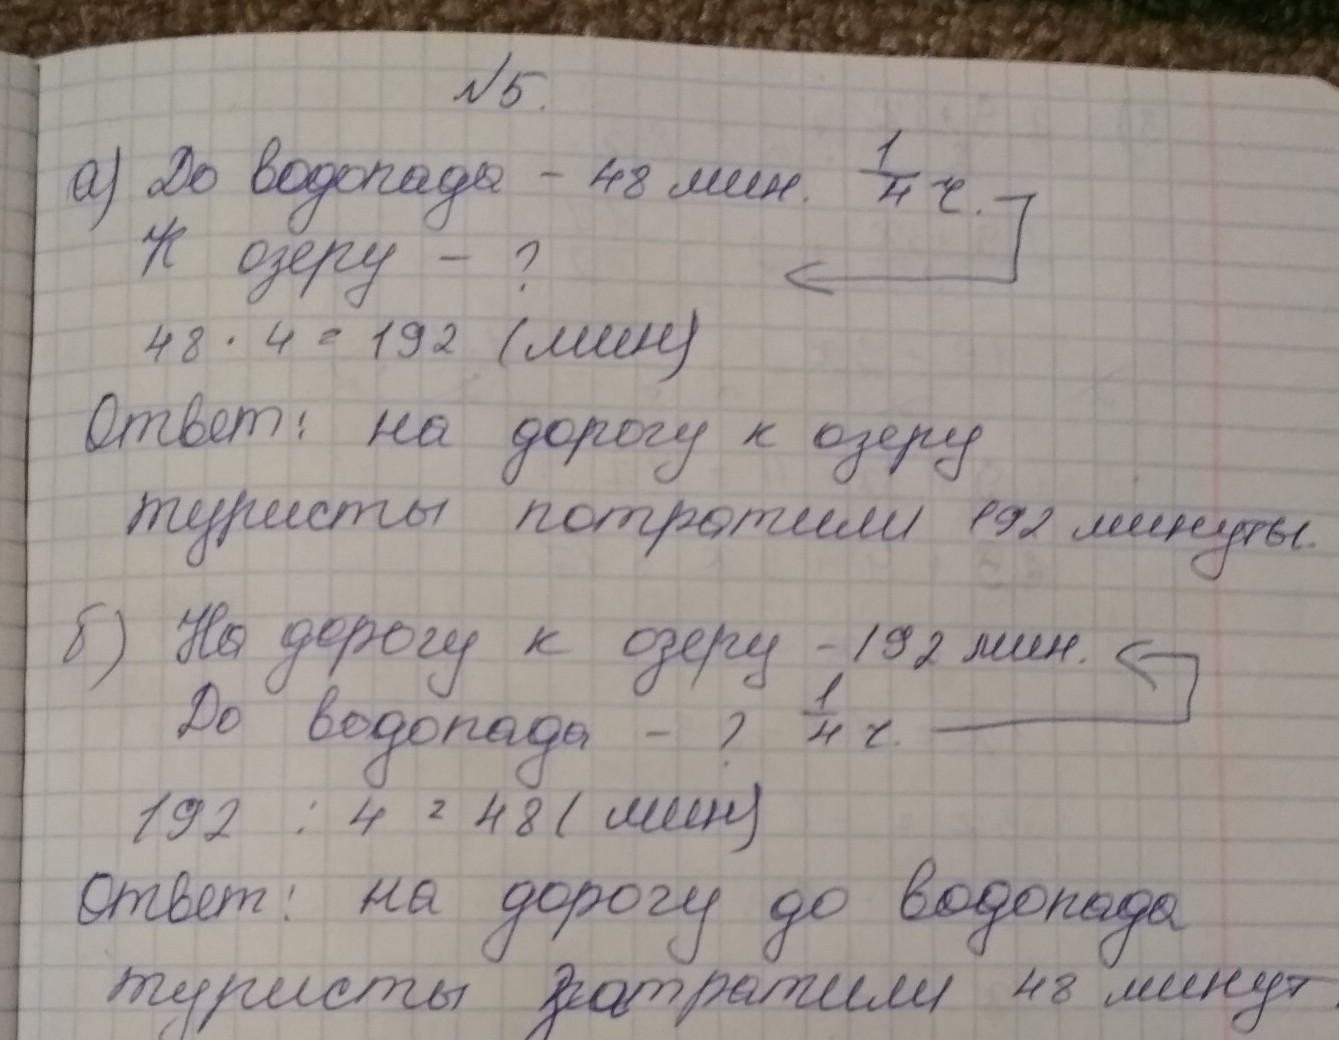 №5.
а) До водопада - 48 мин. 1/4 ч.
К озеру - ?
48 · 4 = 192 (мин)
Ответ: на дорогу к озеру
туристы потратили 192 минуты.
б) На дорогу к озеру - 192 мин.
До водопада - ? 1/4 ч.
192 : 4 = 48 (мин)
Ответ: на дорогу до водопада
туристы затратили 48 минут.